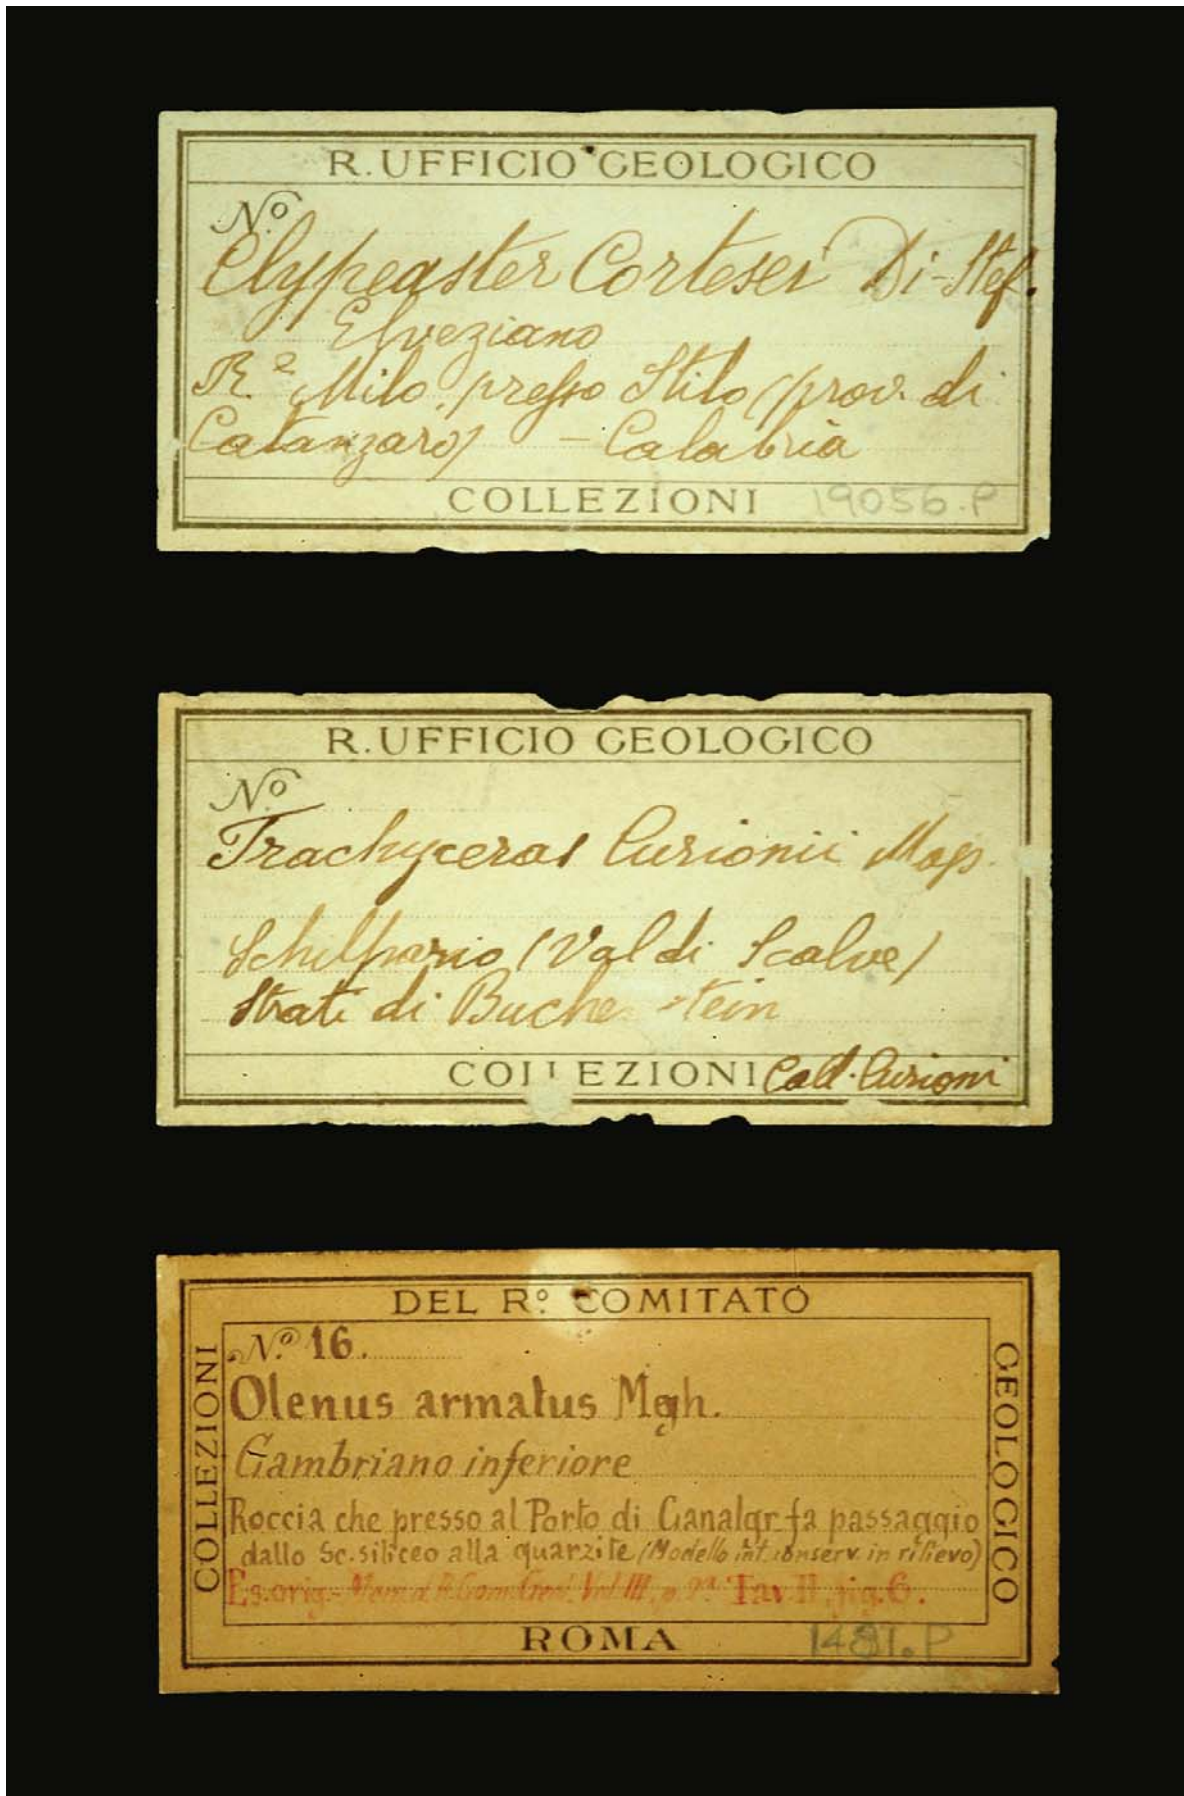 R. UFFICIO GEOLOGICO
No
Clypeaster Cortesei Di-Stef.
Elveziano
Milo, presso Stilo (prov. di
Catanzaro) - Calabria
COLLEZIONI 19056.P
R. UFFICIO GEOLOGICO
No
Trachyceras Curionii Mojs.
Schilpario (Val di Scalve)
Strati di Buchenstein
COLLEZIONI Coll. Curioni
DEL R.o COMITATO
COLLEZIONI
GEOLOGICO
N.o 16.
Olenus armatus Mgh.
Cambriano inferiore
Roccia che presso al Porto di Canalgr. fa passaggio
dallo Sc. siliceo alla quarzite (Modello int. conserv. in rilievo)
Es. orig.- Mem. d. R. Com. Geol. Vol. III, p. 2a. Tav. II, fig. 6.
ROMA